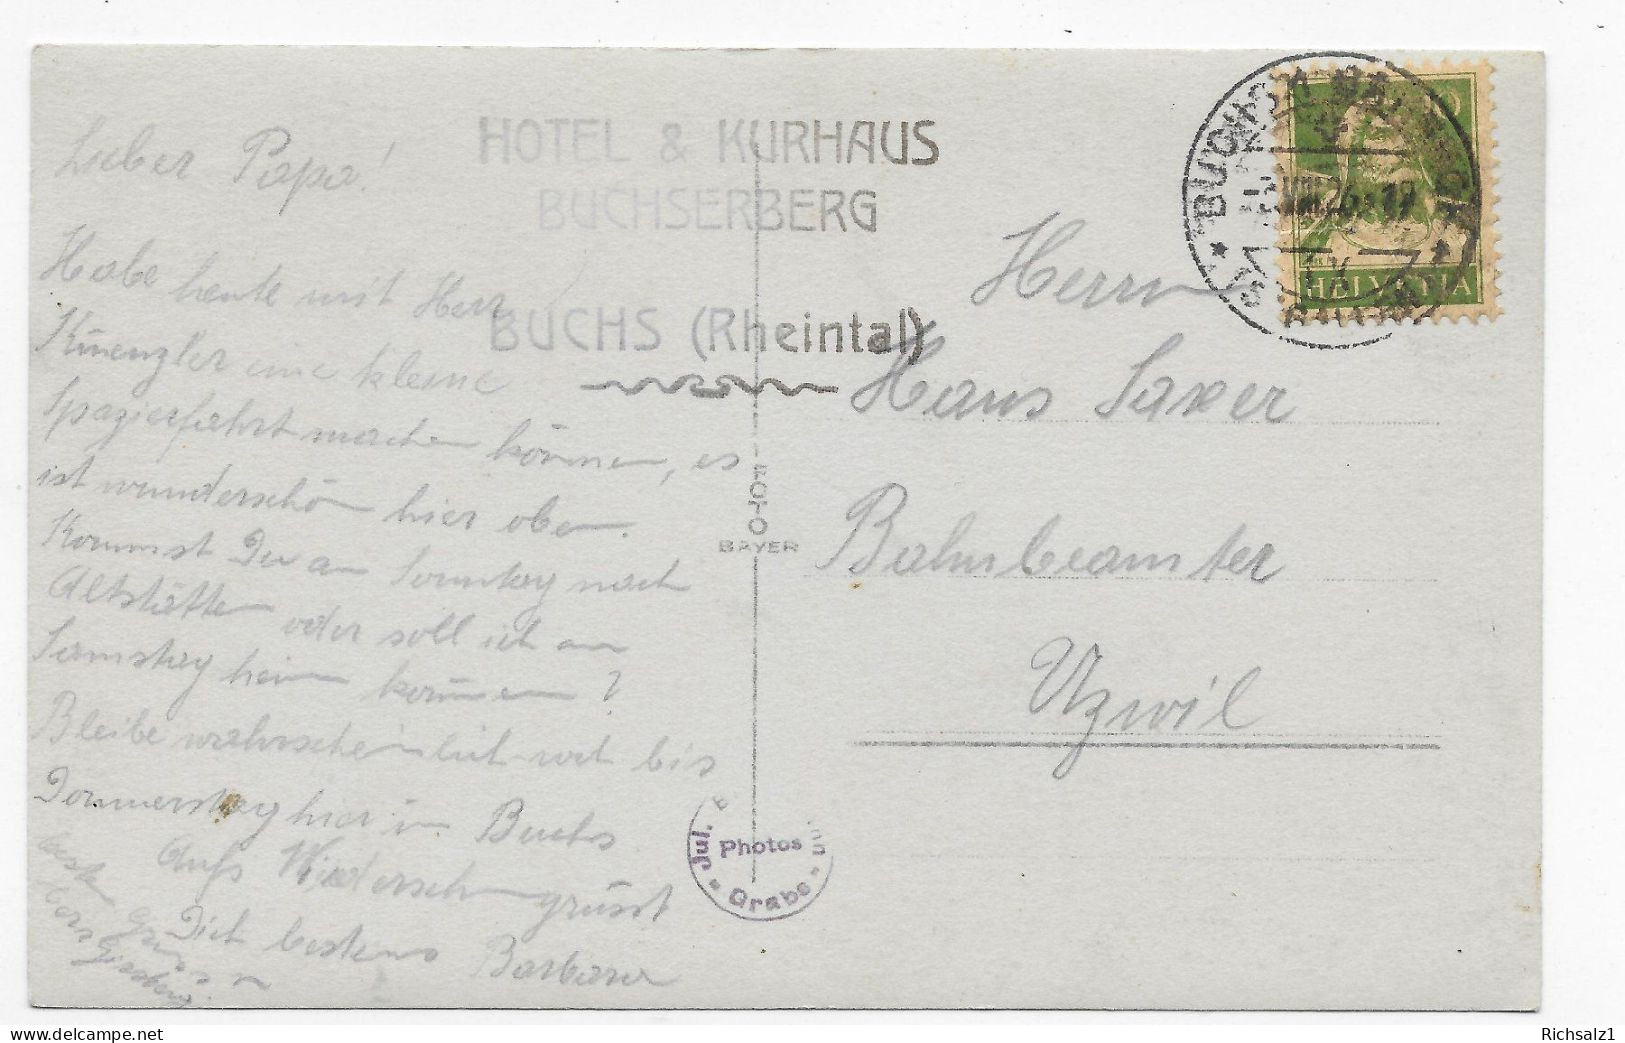 HOTEL & KURHAUS
BUCHSERBERG
BUCHS (Rheintal)
Lieber Papa!
Habe heute mit Herr
Künzler eine kleine
Spazierfahrt machen können, es
ist wunderschön hier oben.
Kommst Du am Sonntag nach
Altstätten oder soll ich am
Samstag heim kommen?
Bleibe wahrscheinlich bis
Donnerstag hier in Buchs
Aufs Wiedersehn grüsst
Dich bestens Barbara
beste Grüsse
FOTO
BAYER
Jul.
Photos
Grabs
HELVETIA
Herrn
Hans Saxer
Bahnbeamter
Uzwil
Richsalz1